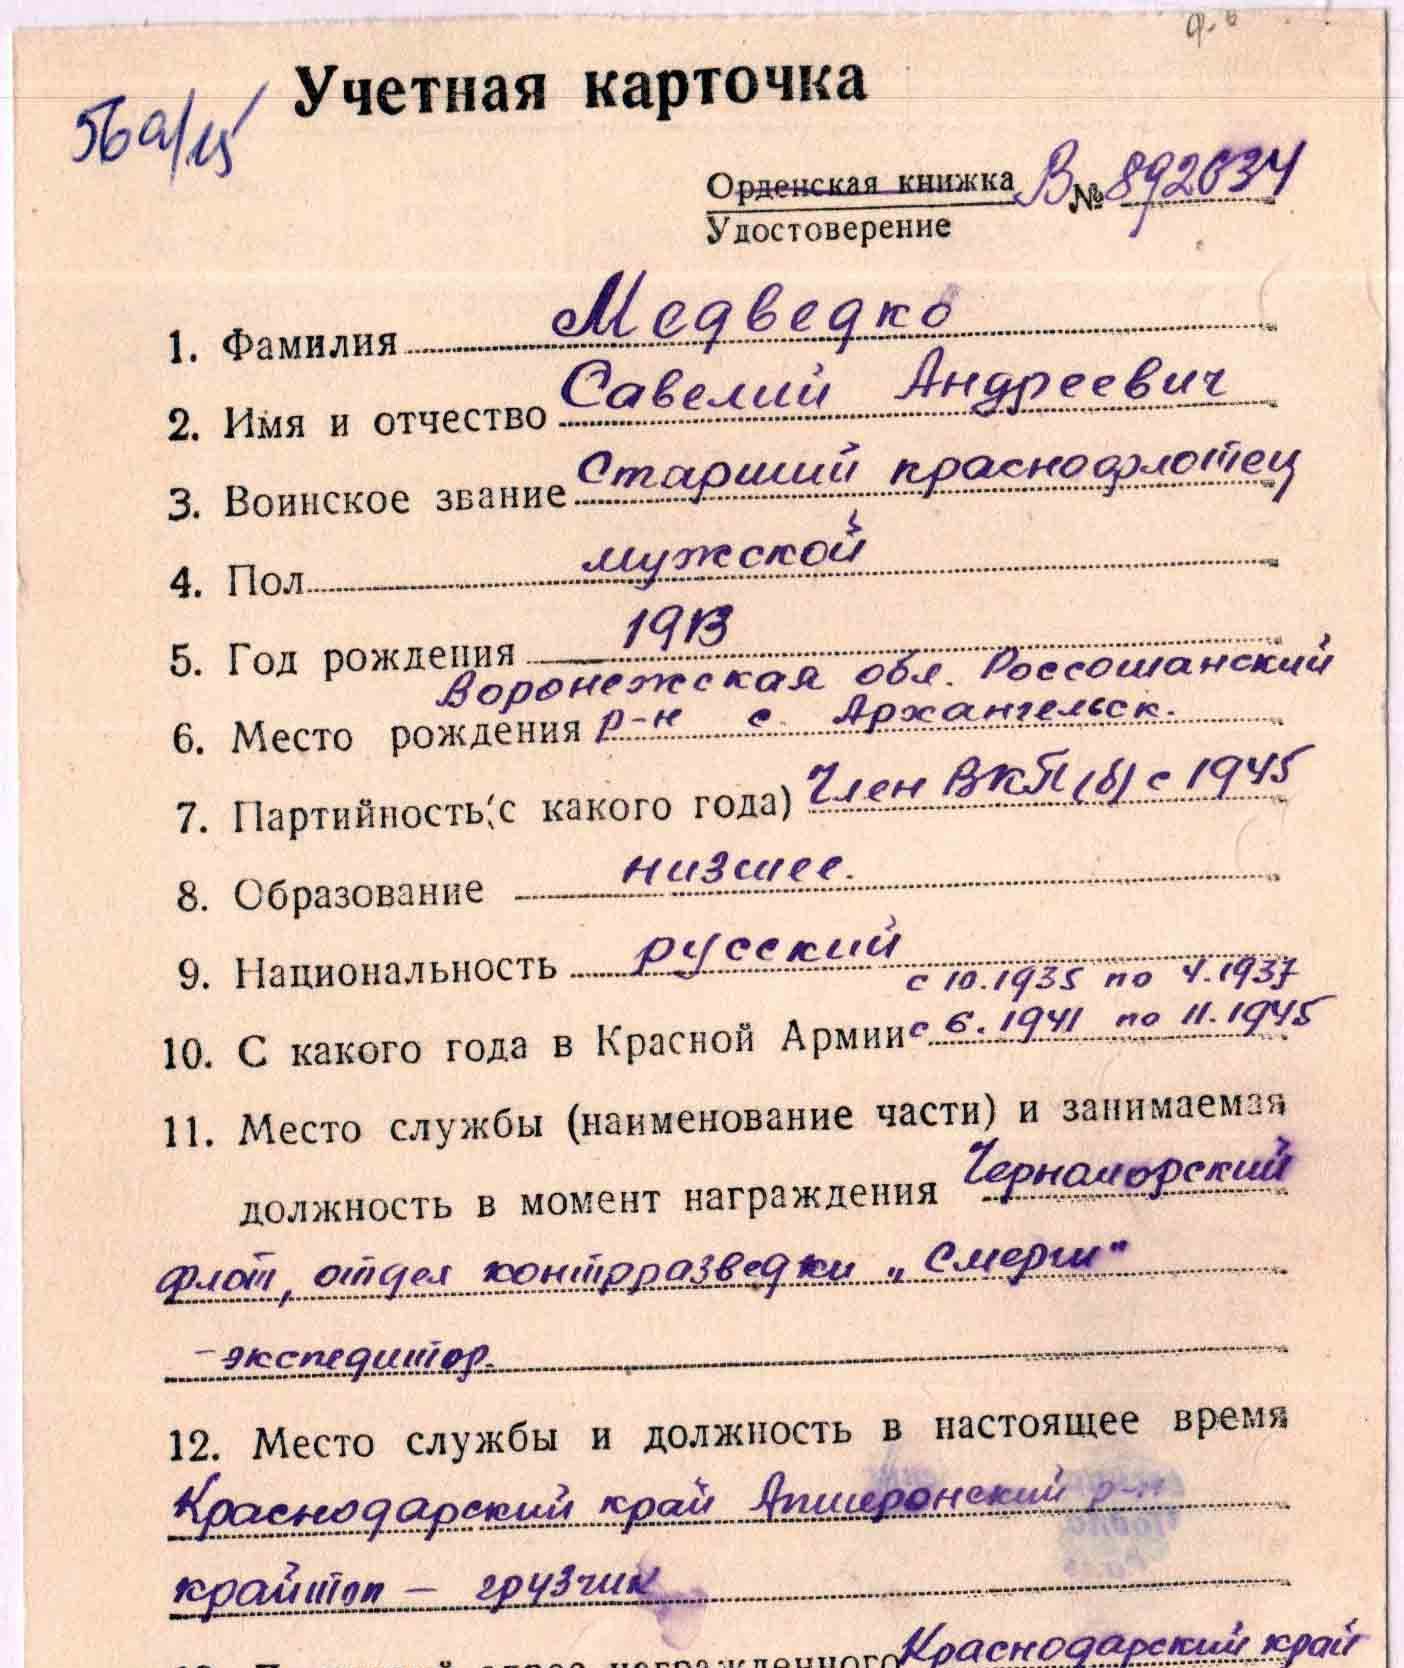 Учетная карточка
56а/15
Орденская книжка В № 892034
Удостоверение
1. Фамилия Медведко
2. Имя и отчество Савелий Андреевич
3. Воинское звание Старший краснофлотец
4. Пол мужской
5. Год рождения 1913
Воронежская обл. Россошанский
6. Место рождения р-н с. Архангельск.
7. Партийность (с какого года) Член ВКП(б) с 1945
8. Образование низшее.
9. Национальность русский
с 10.1935 по 4.1937
10. С какого года в Красной Армии с 6.1941 по 11.1945
11. Место службы (наименование части) и занимаемая
должность в момент награждения Черноморский
флот, отдел контрразведки „Смерш"
-экспедитор.
12. Место службы и должность в настоящее время
Краснодарский край Апшеронский р-н
крайтоп – грузчик
награжденного Краснодарский край